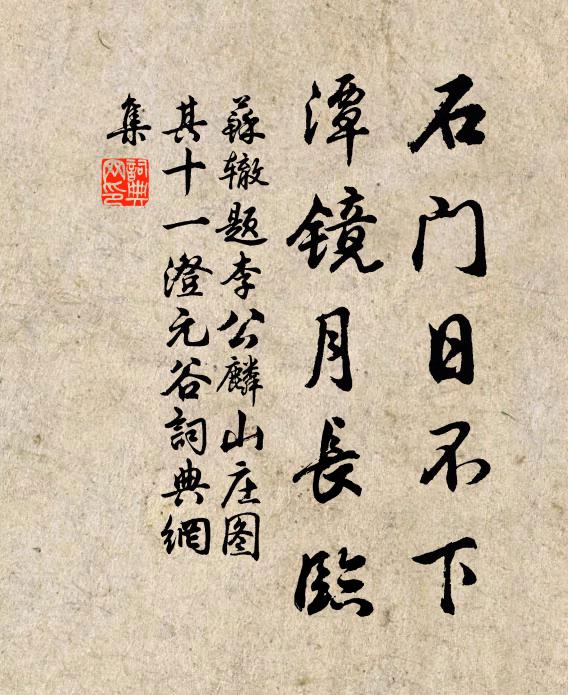 石门日不下
潭镜月長臨
蘇辙题李公麟山庄图
其十一澄元谷詞典網
集
詞典
网印